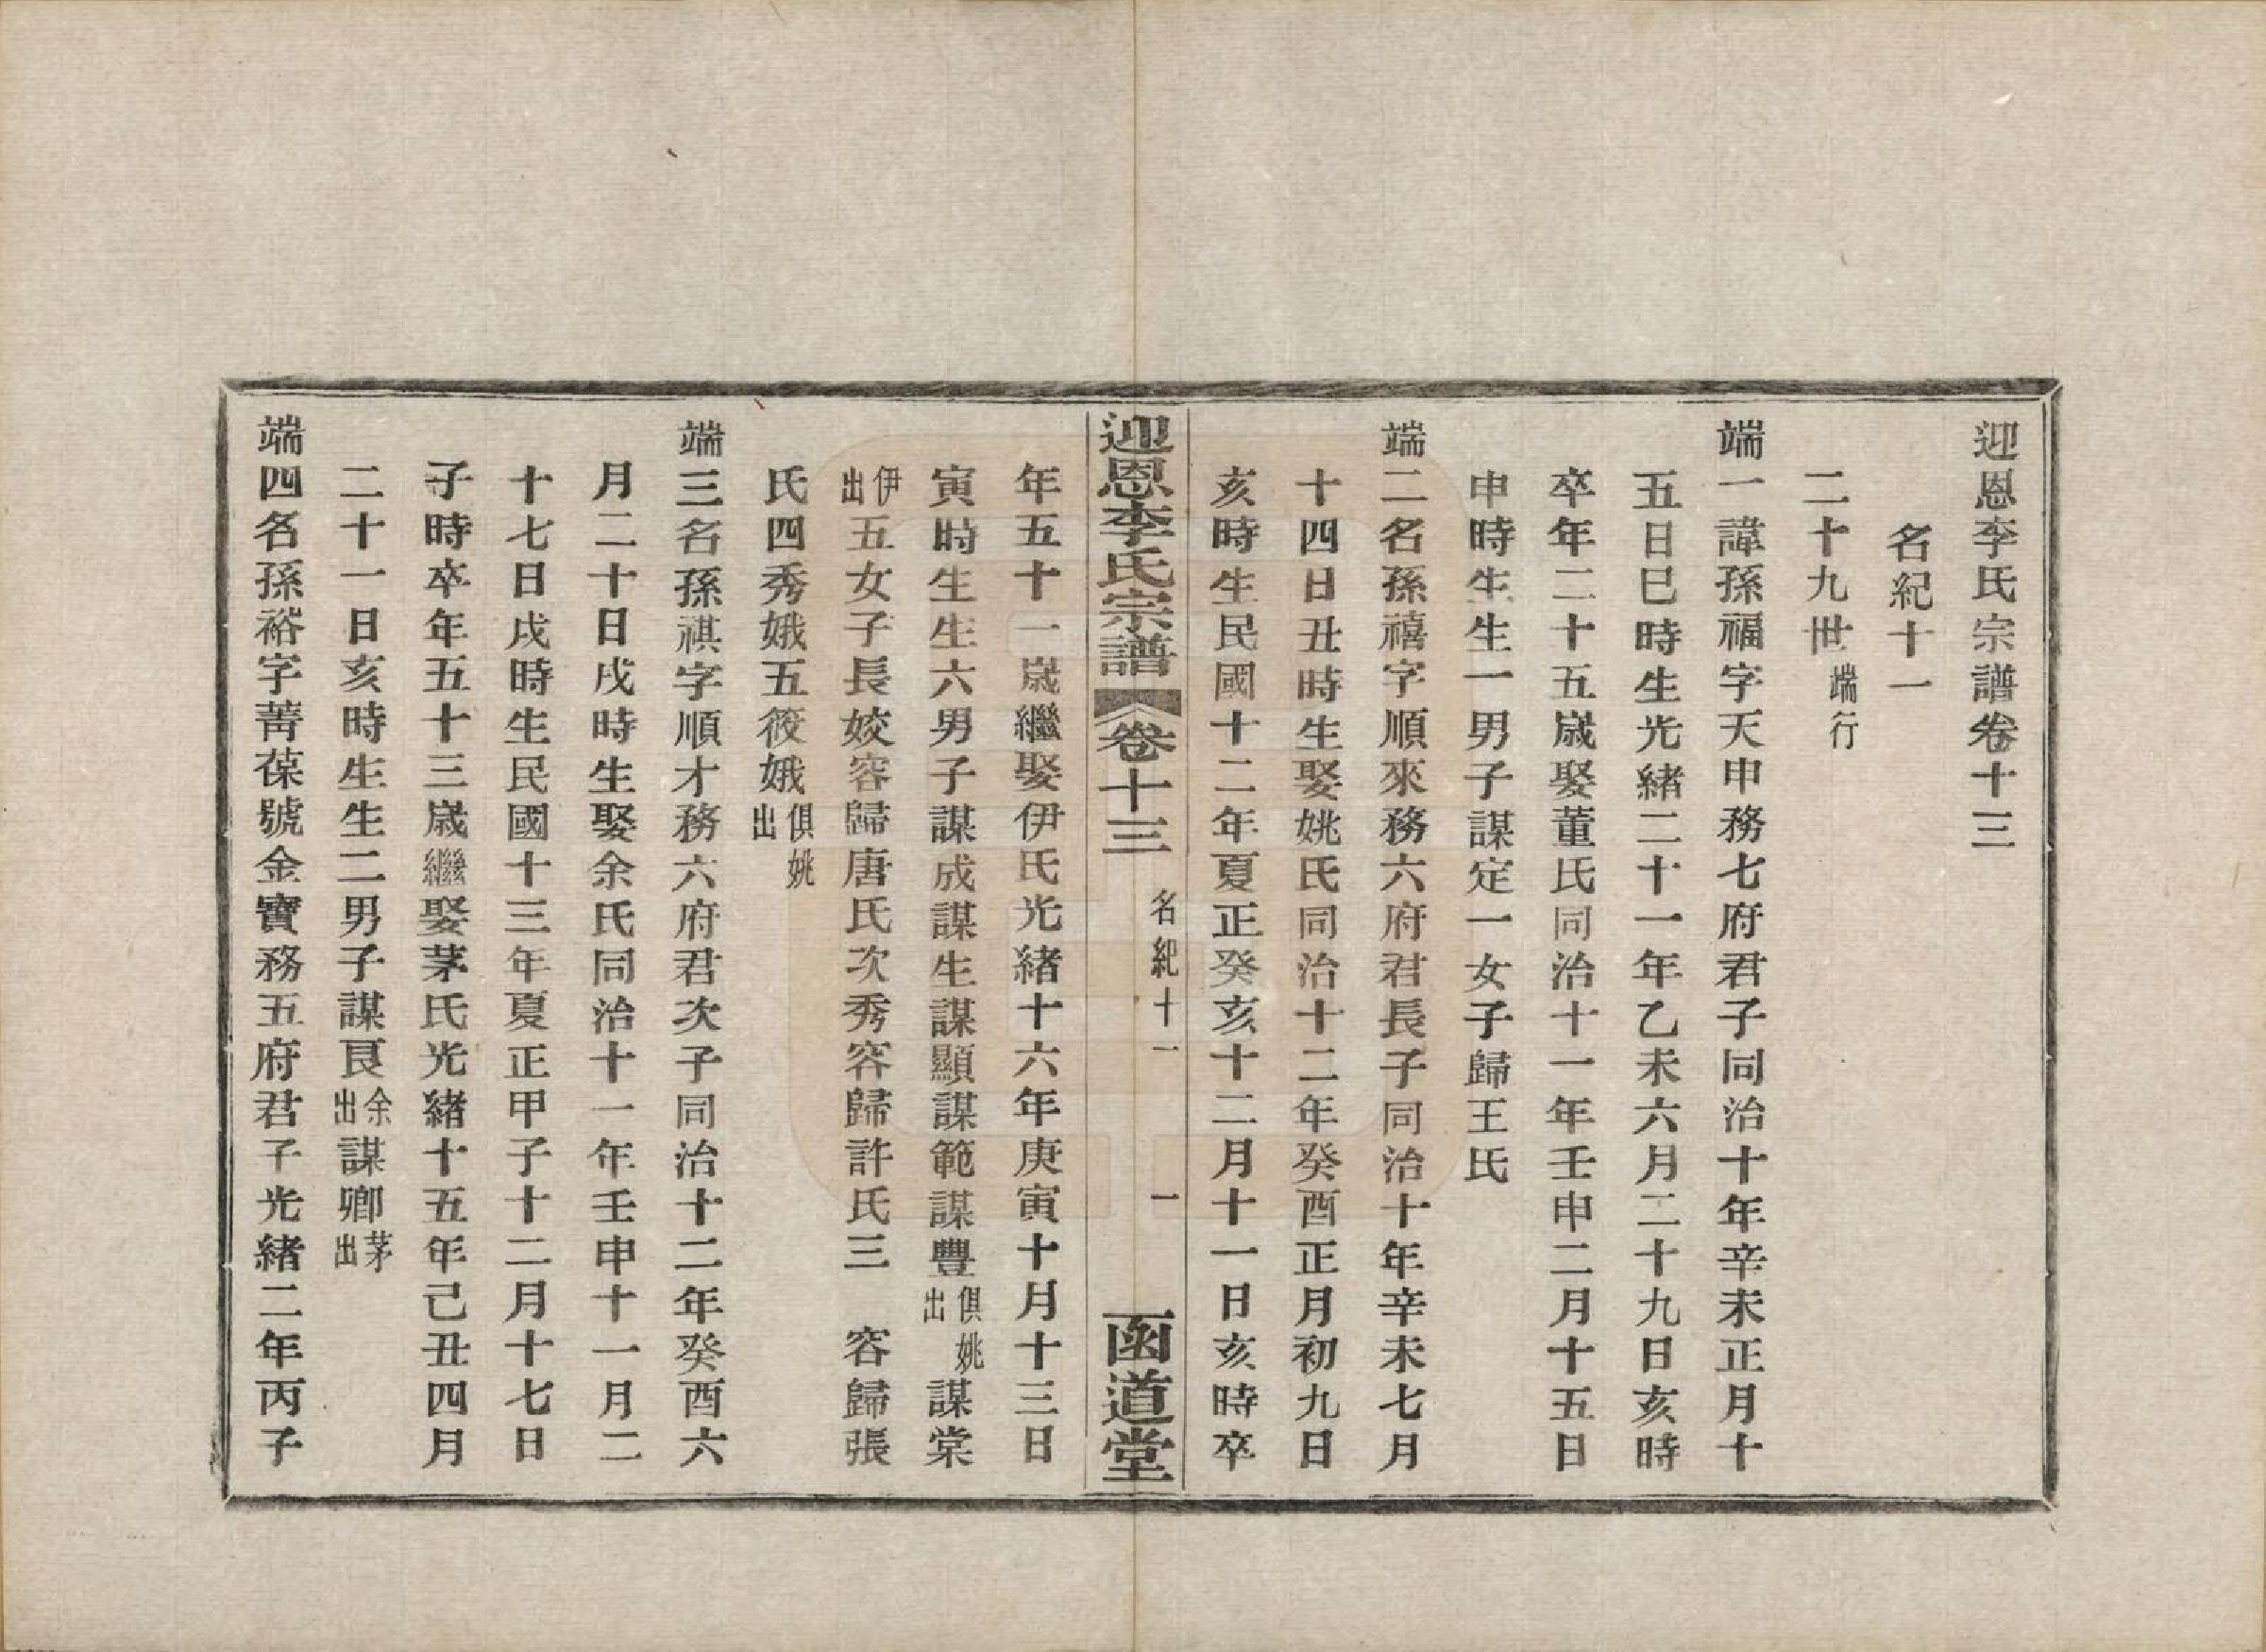 迎恩李氏宗譜卷十三
名紀十一
二十九世端行
端一諱孫福字天申務七府君子同治十年辛未正月十
五日巳時生光緒二十一年乙未六月二十九日亥時
卒年二十五歲娶董氏同治十一年壬申二月十五日
申時生生一男子謀定一女子歸王氏
端二名孫禧字順來務六府君長子同治十年辛未七月
十四日丑時生娶姚氏同治十二年癸酉正月初九日
亥時生民國十二年夏正癸亥十二月十一日亥時卒
迎恩李氏宗譜 卷十三 名紀十一 一 函道堂
年五十一歲繼娶伊氏光緒十六年庚寅十月十三日
寅時生生六男子謀成謀生謀顯謀範謀豐俱姚出謀棠
伊出五女子長姣容歸唐氏次秀容歸許氏三 容歸張
氏四秀娥五筱娥俱姚出
端三名孫祺字順才務六府君次子同治十二年癸酉六
月二十日戌時生娶余氏同治十一年壬申十一月二
十七日戌時生民國十三年夏正甲子十二月十七日
子時卒年五十三歲繼娶茅氏光緒十五年己丑四月
二十一日亥時生生二男子謀艮余出謀卿茅出
端四名孫裕字菁葆號金寶務五府君子光緒二年丙子